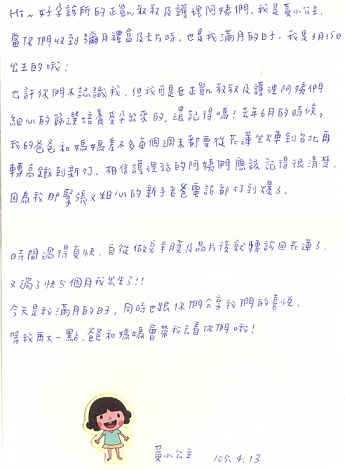 Hi~ 好孕診所的正凱叔叔及護理阿姨們,我是黃小公主,
當你們收到彌月禮盒及卡片時,也是我滿月的日子,我是3月15日
出生的哦!
也許你們不認識我,但我可是在正凱叔叔及護理阿姨們
細心的篩選培養
出來的,還記得嗎!去年6月的時候,
我的爸爸和媽媽差不多每個週末都會從花蓮坐車到台北再
轉高鐵到新竹。相信護理站的阿姨們應該記得很清楚,
因為我那緊張又粗心的新手老爸電話都打到爆了。
時間過得真快,自從做完羊膜及晶片後就轉診回花蓮了。
又過了快5個月我出生了!!
今天是我滿月的日子,同時也跟你們分享我們的喜悅,
等我再大一點,爸和媽媽會帶我去看你們哦!
黃小公主 105.4.13